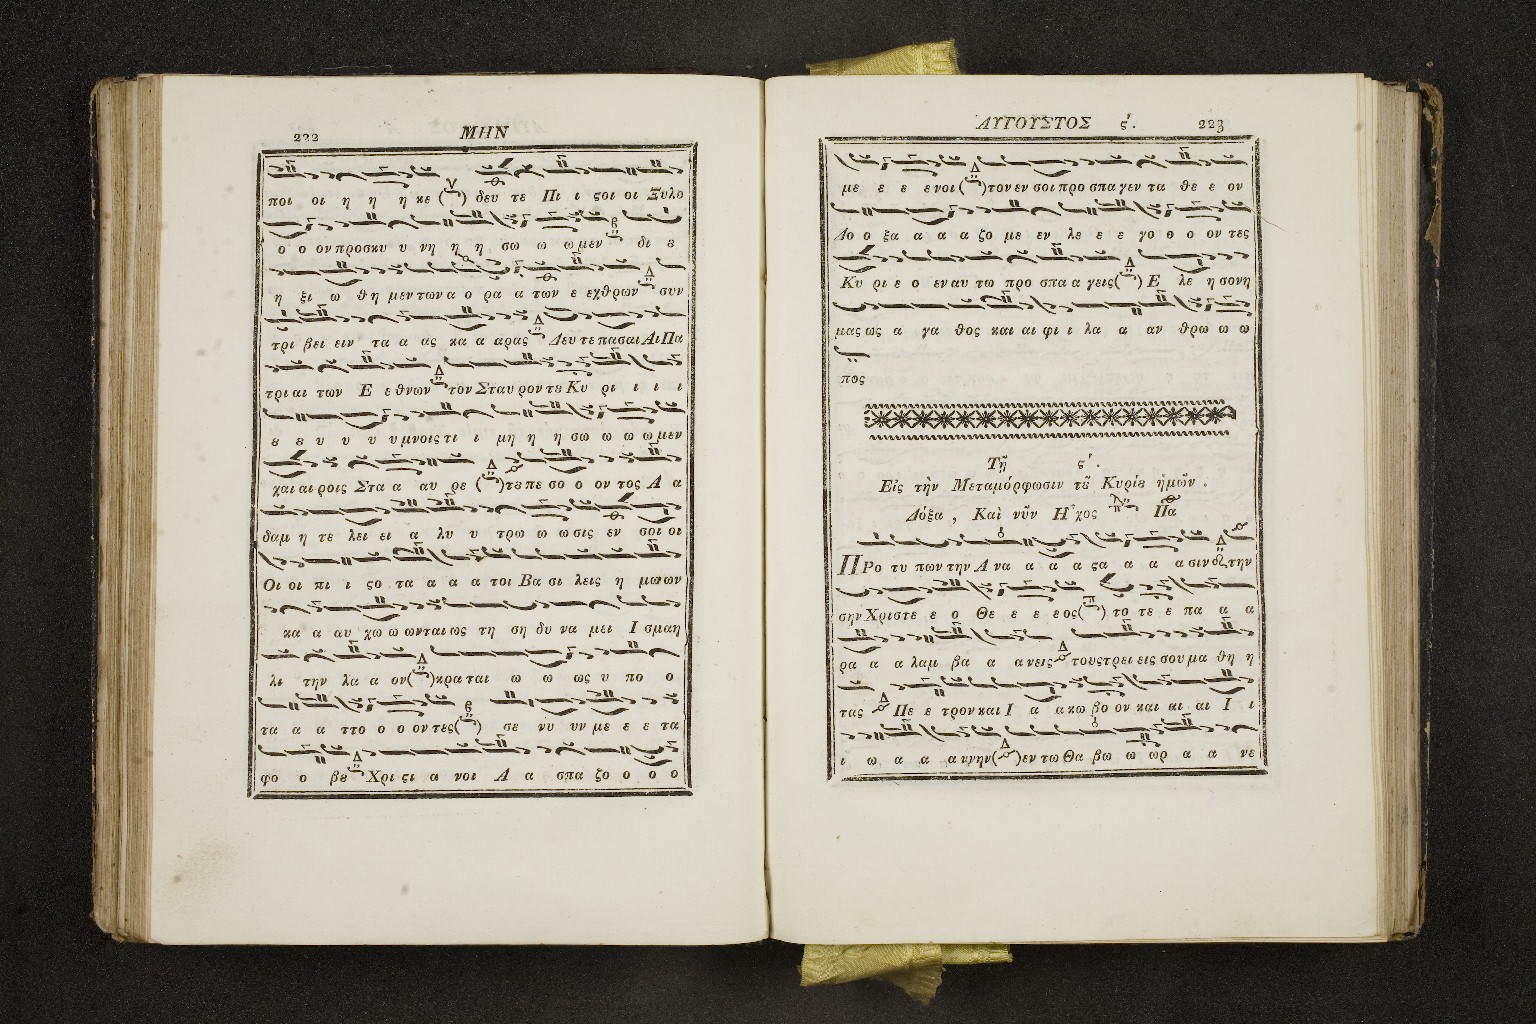 222
ΜΗΝ
ποι οι η η η κε ( ) δευ τε Πι ι ϛοι οι Ξυλο
ο ο ον προσκυ υ νη η η σω ω ω μεν δι ȣ
η ξι ω θη μεν των α ο ρα α των ε εχθρων συν
τρι βει ειν τα α ας κα α αρας Δευ τε πασαι Αι Πα
τρι αι των Ε ε θνων τον Σταυ ρον τȣ Κυ ρι ι ι ι
ȣ ȣ υ υ υ υ μνοις τι ι μη η η σω ω ω ω μεν
χαι αι ροις Στα α αυ ρε ( ) τȣ πε σο ο ον τος Α α
δαμ η τε λει ει α λυ υ τρω ω ω σις εν σοι οι
Οι οι πι ι ϛο τα α α α τοι Βα σι λεις η μω ων
κα α αυ χω ω ωνται ως τη ση δυ να μει Ι σμαη
λι την λα α ον ( ) κρα ται ω ω ως υ πο ο
τα α α ττο ο ο ον τες ( ) σε νυ υν με ε ε τα
φο ο βȣ Χρι ϛι α νοι Α α σπα ζο ο ο ο
ΑΥΓΟΥΣΤΟΣ ϛʹ.
223
με ε ε ε νοι ( ) τον εν σοι προ σπα γεν τα θε ε ον
Δο ο ξα α α α ζο με εν λε ε ε γο ο ο ον τες
Κυ ρι ε ο εν αυ τω προ σπα α γεις ( ) Ε λε η σον η
μας ως α γα θος και αι φι ι λα α αν θρω ω ω
πος
Τῇ ϛʹ.
Εἰς τὴν Μεταμόρφωσιν τȣ͂ Κυρίȣ ἡμῶν .
Δόξα , Καὶ νῦν Ἦχος Πα
ΠΡο τυ πων την Α να α α α ϛα α α α σιν δȣ, την
σην Χριστε ε ο Θε ε ε ε εος ( ) το τε ε πα α α
ρα α α λαμ βα α α νεις τους τρει εις σου μα θη η
τας Πε ε τρον και Ι α α κω βο ον και αι αι Ι ι
ι ω α α α ννην ( ) εν τω Θα βω ω ωρ α α νε